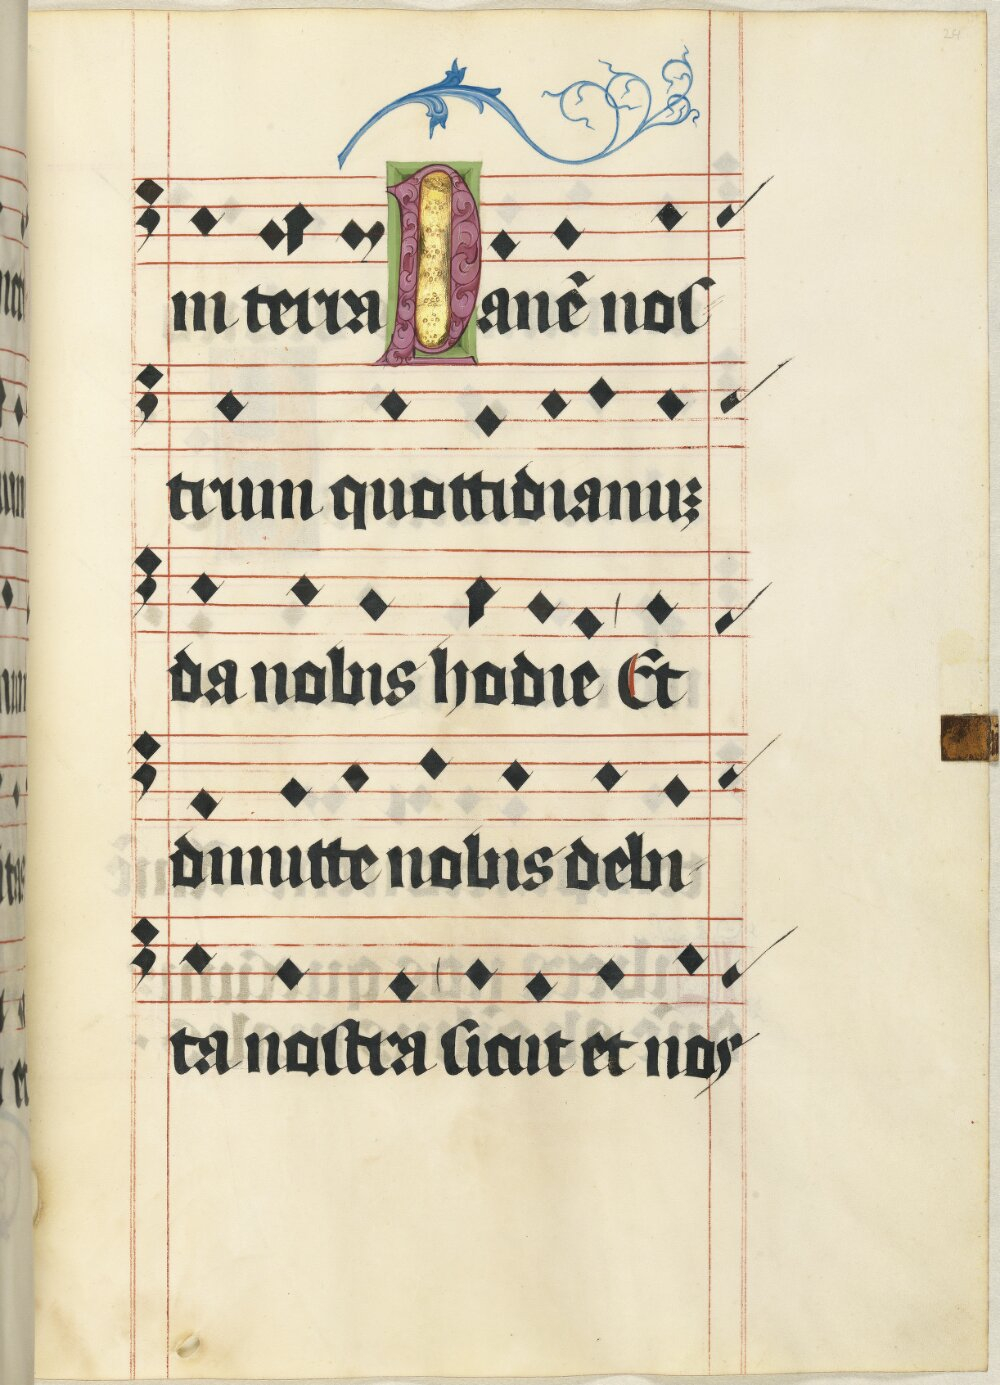 in terra Panē nos
trum quottidianuʒ
da nobis hodie Et
dimitte nobis debi
ta nostra sicut et nos